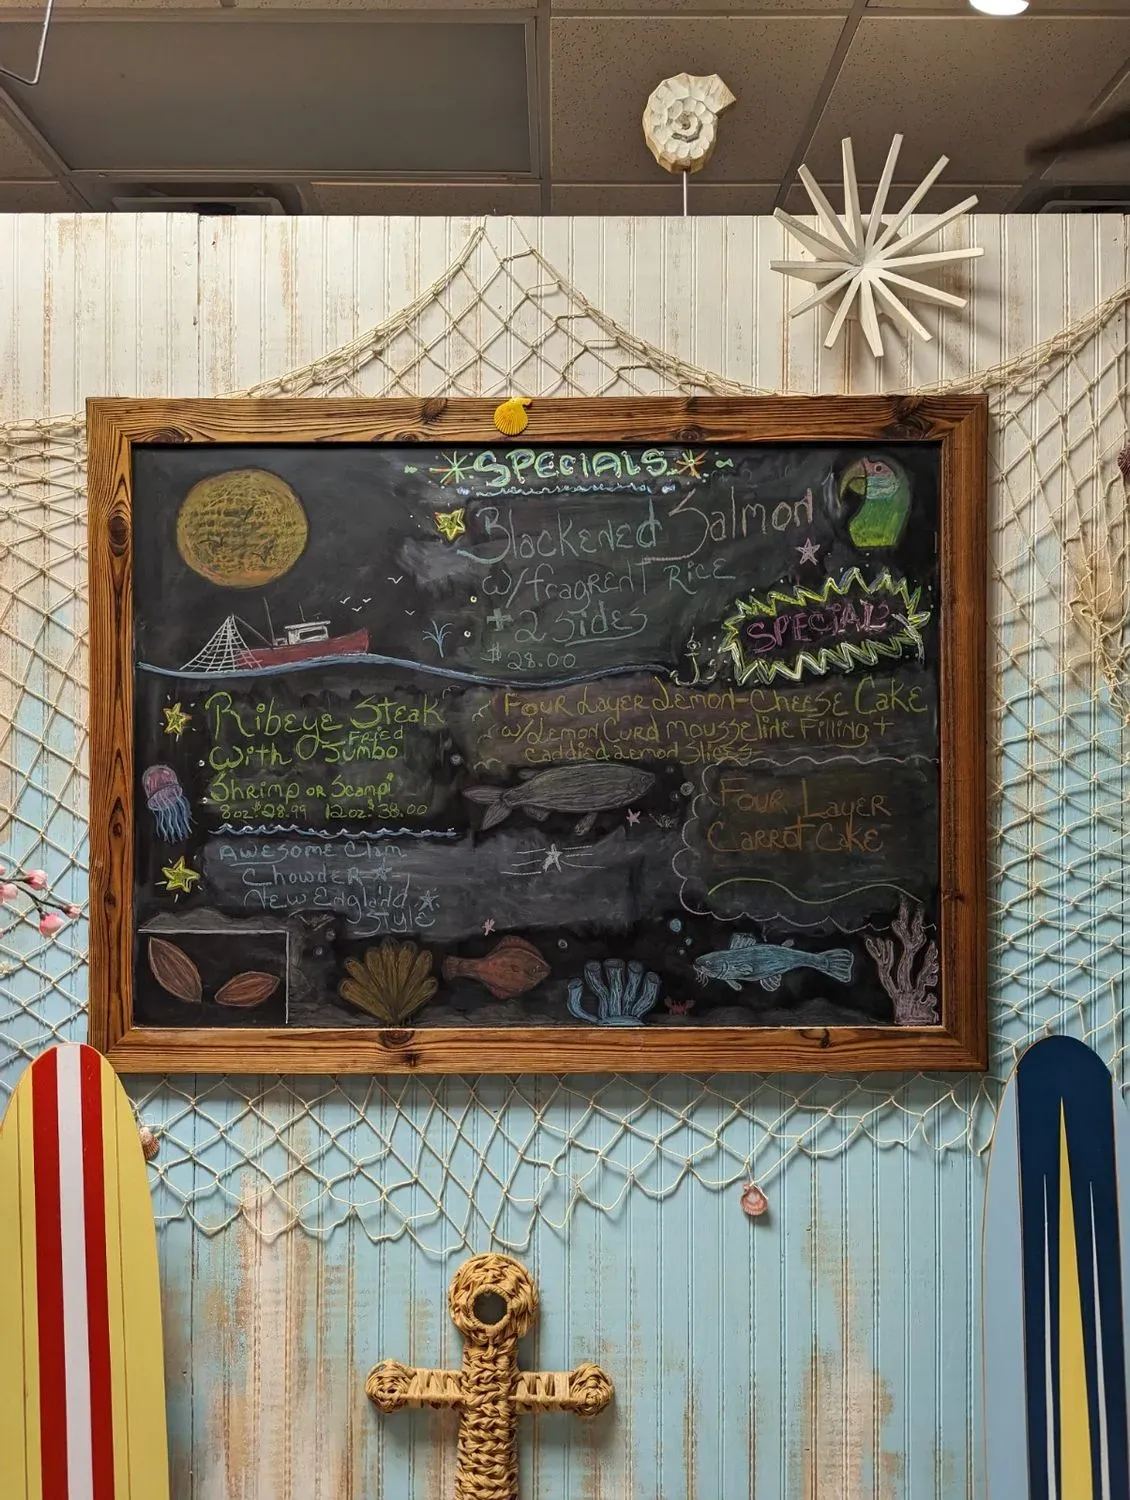 SPECIALS
Blackened Salmon
w/fragrent Rice
+ 2 sides
$28.00
SPECIAL
Ribeye Steak
With Fried Jumbo
Shrimp or Scampi
8oz. $28.99 12oz. $38.00
Four Layer Lemon-Cheese Cake
w/Lemon Curd mousseline Filling +
caddied Lemon Slices
Four Layer
Carrot Cake
Awesome Clam
Chowder
New England
Style